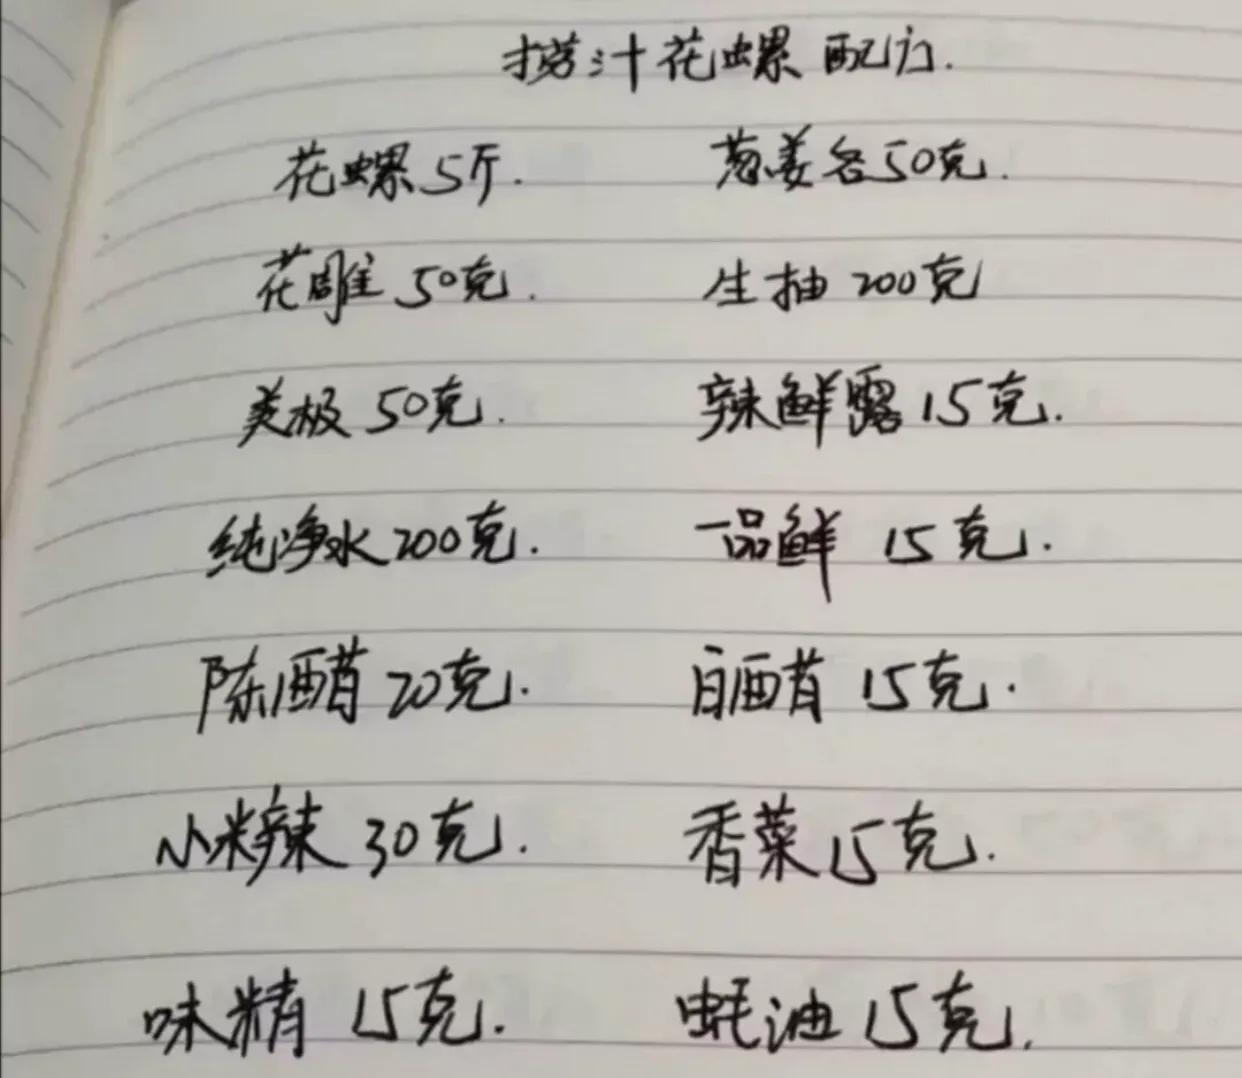 捞汁花螺配方.
花螺5斤. 葱姜各50克.
花雕50克. 生抽200克
美极50克. 辣鲜露15克.
纯净水200克. 一品鲜 15克.
陈醋20克. 白醋15克.
小米辣30克. 香菜15克.
味精 15克. 蚝油15克.